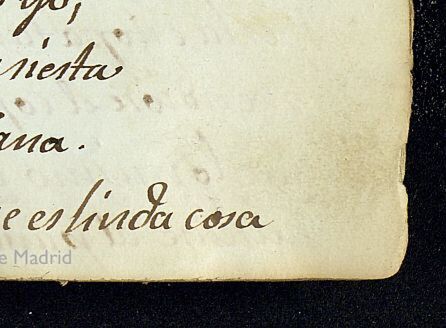 yo,
siesta
ana.
e es linda cosa
e Madrid